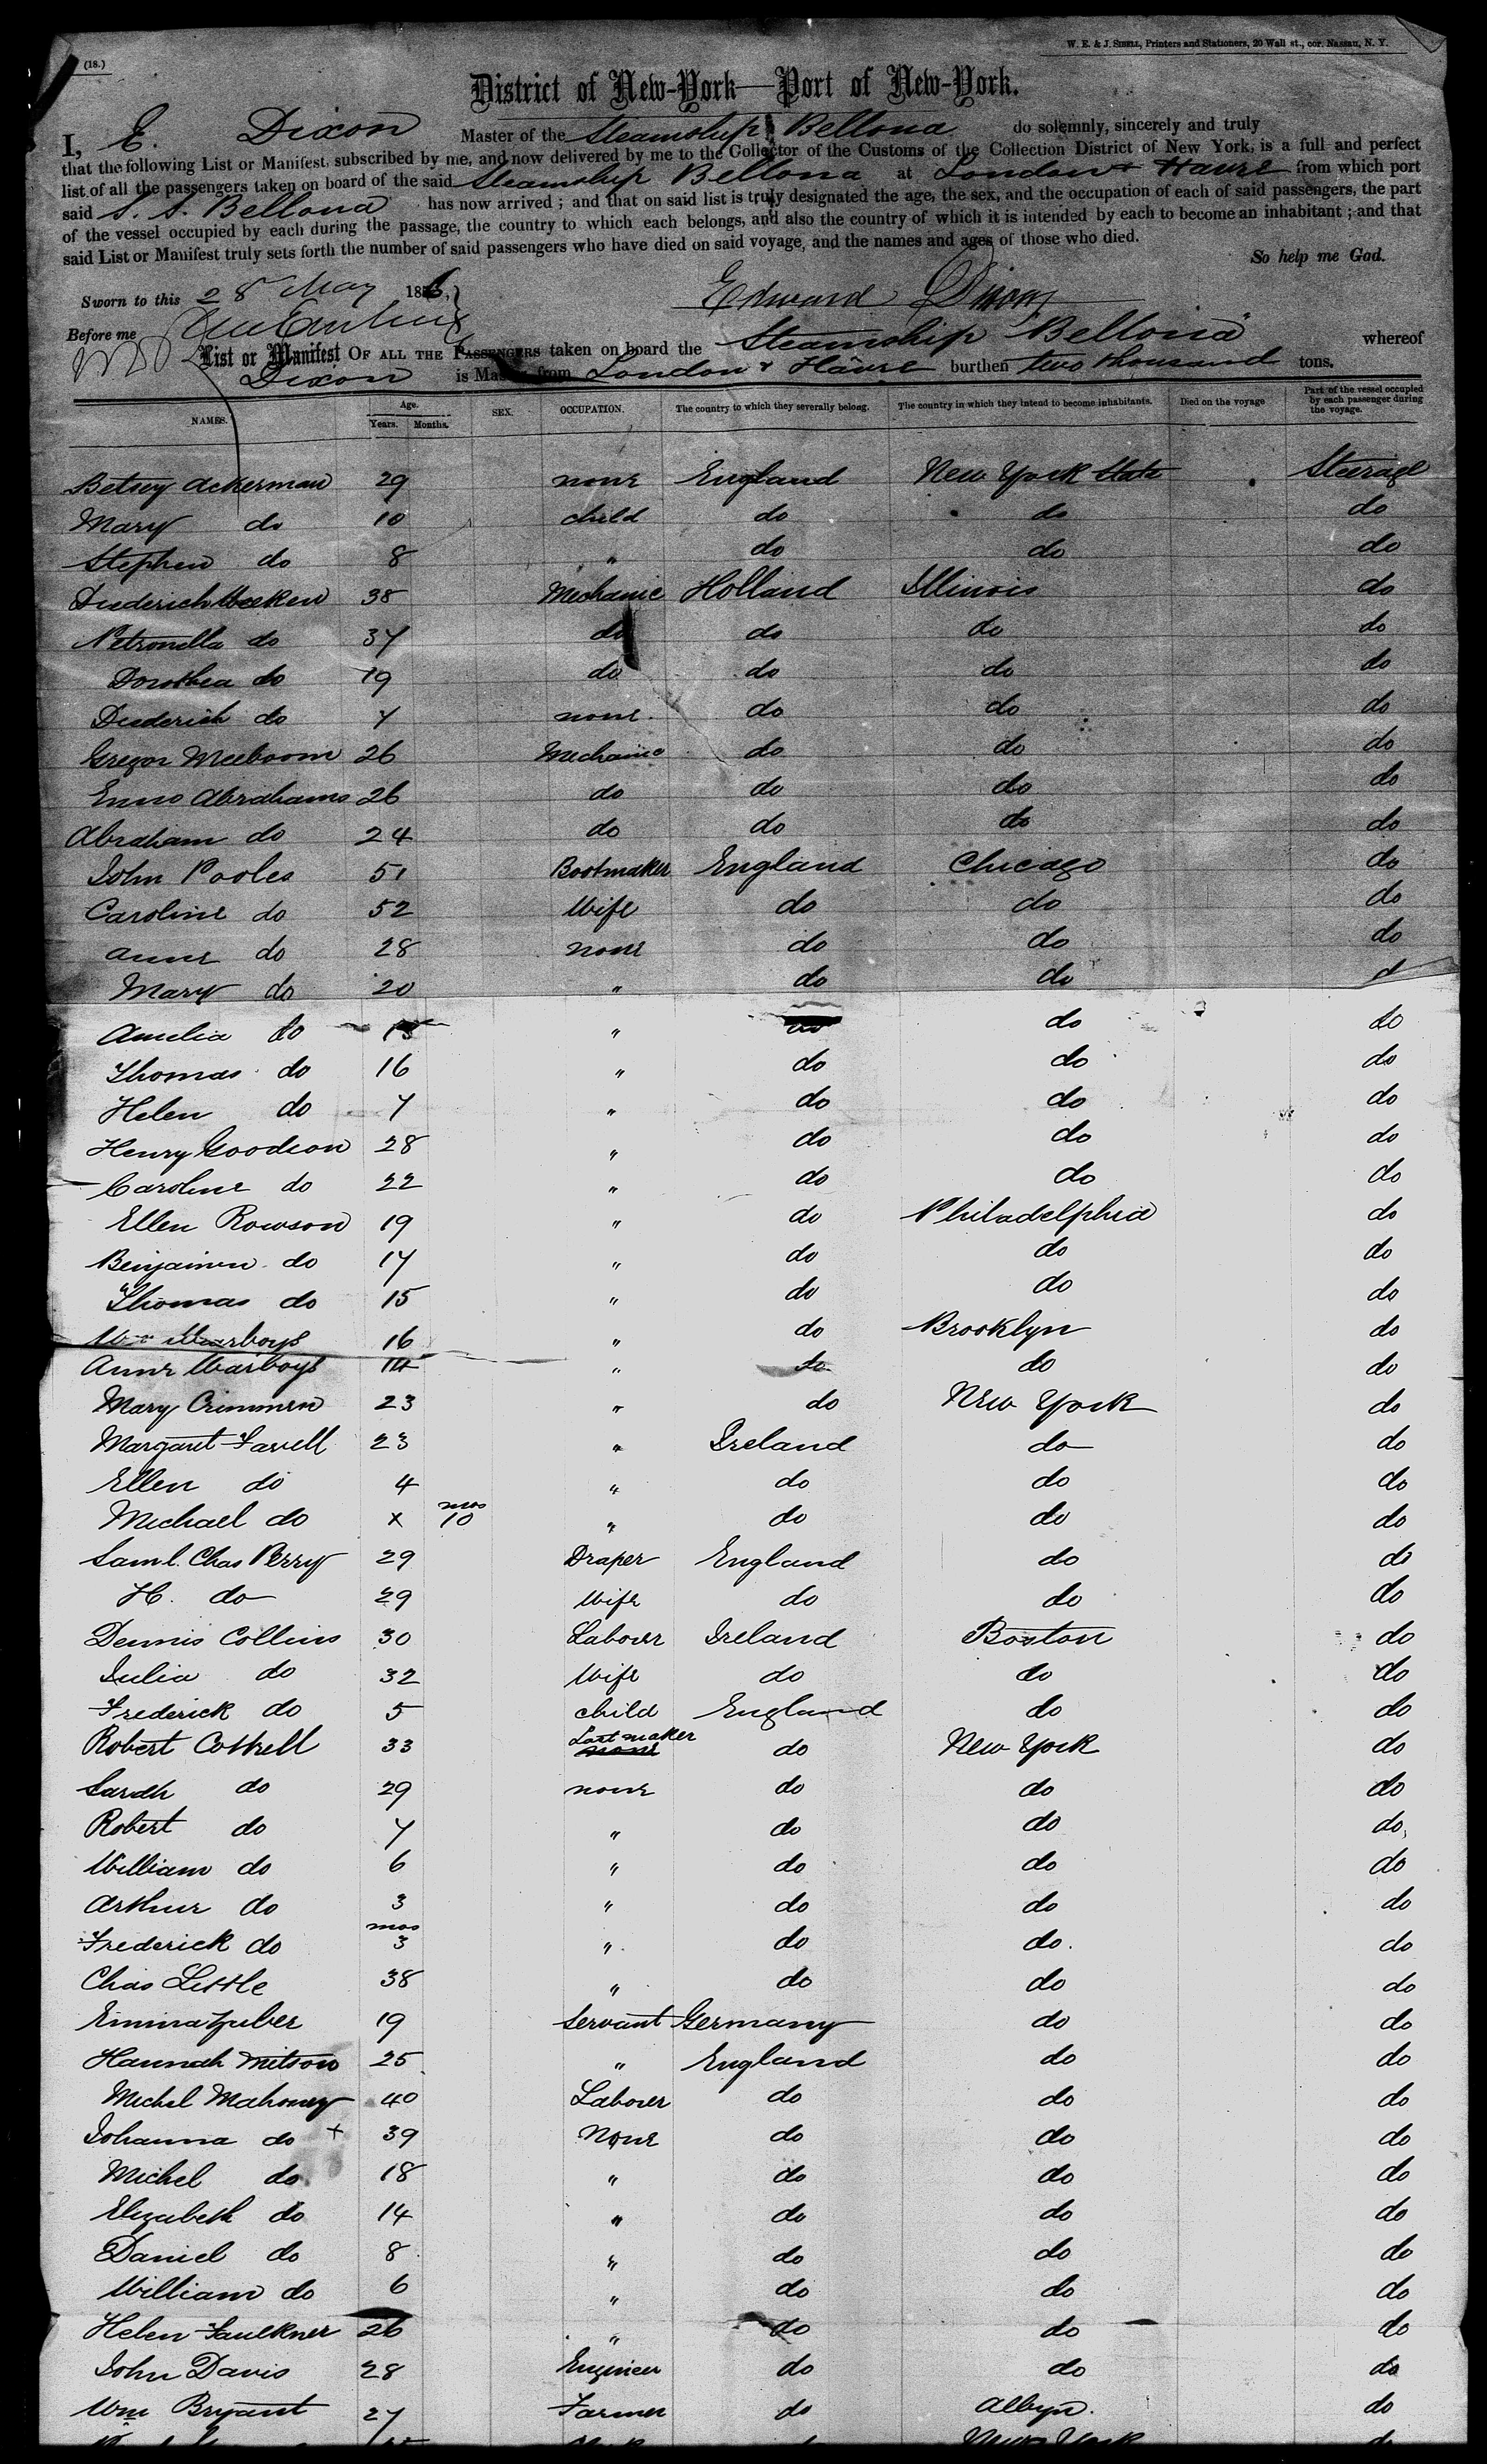 (18.)
W. E. & J. SIBELL, Printers and Stationers, 20 Wall st., cor. Nassau, N. Y.
District of New-York—Port of New-York.
I, E. Dixon Master of the Steamship Bellona do solemnly, sincerely and truly
that the following List or Manifest, subscribed by me, and now delivered by me to the Collector of the Customs of the Collection District of New York, is a full and perfect
list of all the passengers taken on board of the said Steamship Bellona at London & Havre from which port
said S. S. Bellona has now arrived; and that on said list is truly designated the age, the sex, and the occupation of each of said passengers, the part
of the vessel occupied by each during the passage, the country to which each belongs, and also the country of which it is intended by each to become an inhabitant; and that
said List or Manifest truly sets forth the number of said passengers who have died on said voyage, and the names and ages of those who died.
So help me God.
Sworn to this 28 May 186
Edward Dixon
Before me
List or Manifest OF ALL THE PASSENGERS taken on board the Steamship "Bellona" whereof
Dixon is Master, from London & Havre burthen two thousand tons.
NAMES. Age. Years. Months. SEX. OCCUPATION. The country to which they severally belong. The country in which they intend to become inhabitants. Died on the voyage Part of the vessel occupied by each passenger during the voyage.
Betsey Ackerman 29 none England New York State Steerage
Mary do 10 child do do do
Stephen do 8 " do do do
Diederich 38 Mechanic Holland Illinois do
Petronella do 37 do do do do
Dorothea do 19 do do do do
Diederich do 7 none. do do do
Gregor Meeboom 26 Mechanic do do do
Enno Abrahams 26 do do do do
Abraham do 24 do do do do
John Pooles 51 Bootmaker England Chicago do
Caroline do 52 Wife do do do
Anne do 28 none do do do
Mary do 20 " do do d
Amelia do " do do do
Thomas do 16 " do do do
Helen do 7 " do do do
Henry Goodson 28 " do do do
Caroline do 22 " do do do
Ellen Rowson 19 " do Philadelphia do
Benjamin do 17 " do do do
Thomas do 15 " do do do
Wm Warboys 16 " do Brooklyn do
Anne Warboys 14 " do do do
Mary Crimmen 23 " do New York do
Margaret Farell 23 " Ireland do do
Ellen do 4 " do do do
Michael do x mos 10 " do do do
Saml. Chas Perry 29 Draper England do do
H. do 29 Wife do do do
Dennis Collins 30 Labourer Ireland Boston do
Julia do 32 Wife do do do
Frederick do 5 child England do do
Robert Cottrell 33 Last maker none do New York do
Sarah do 29 none do do do
Robert do 7 " do do do
William do 6 " do do do
Arthur do 3 " do do do
Frederick do mos 3 " do do. do
Chas Little 38 " do do do
Emma Zuber 19 Servant Germany do do
Hannah Mitson 25 " England do do
Michel Mahoney 40 Labourer do do do
Johanna do + 39 None do do do
Michel do 18 " do do do
Elizabeth do 14 " do do do
Daniel do 8 " do do do
William do 6 " do do do
Helen Faulkner 26 " do do do
John Davis 28 Engineer do do do
Wm Bryant 27 Farmer do Albyn. do
New York do